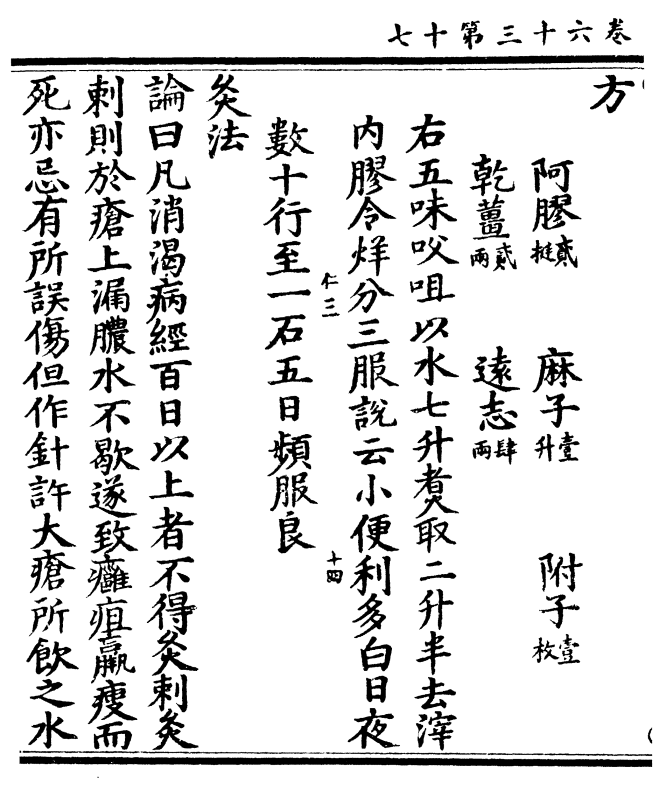 卷六十三第十七
方
阿膠貳挺 麻子壹升 附子壹枚
乾薑貳兩 遠志肆兩
右五味㕮咀以水七升煑取二升半去滓
内膠令烊分三服說云小便利多白日夜
仁三
十四
數十行至一石五日頻服良
灸法
論曰凡消渴病經百日以上者不得灸刺灸
刺則於瘡上漏膿水不歇遂致癰疽羸瘦而
死亦忌有所誤傷但作針許大瘡所飲之水